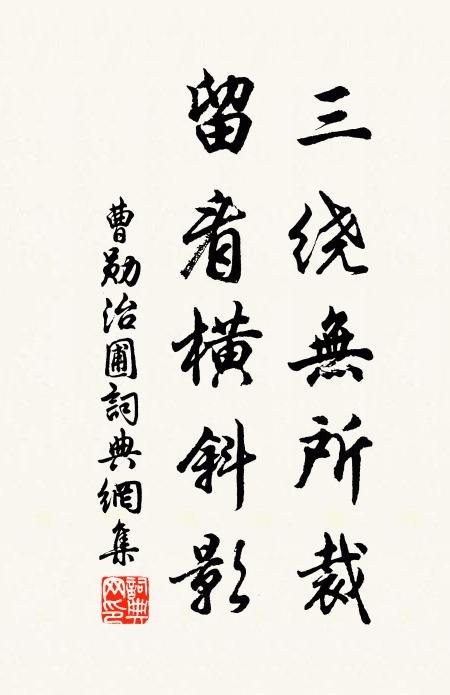 三绕無所裁
留看横斜影
曹勋治圃詞典網集
詞典网印